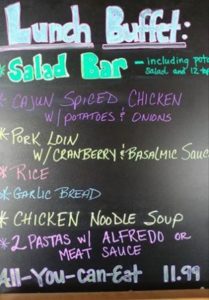 Lunch Buffet:
* Salad Bar – including pota
Salad and 12 top
* CAJUN SPICED CHICKEN
W/ POTATOES & ONIONS
* PORK LOIN
W/ CRANBERRY & BASALMIC SAUC
* RICE
* GARLIC BREAD
* CHICKEN NOODLE SOUP
* 2 PASTAS W/ ALFREDO OR
MEAT SAUCE
All-You-Can-Eat 11.99